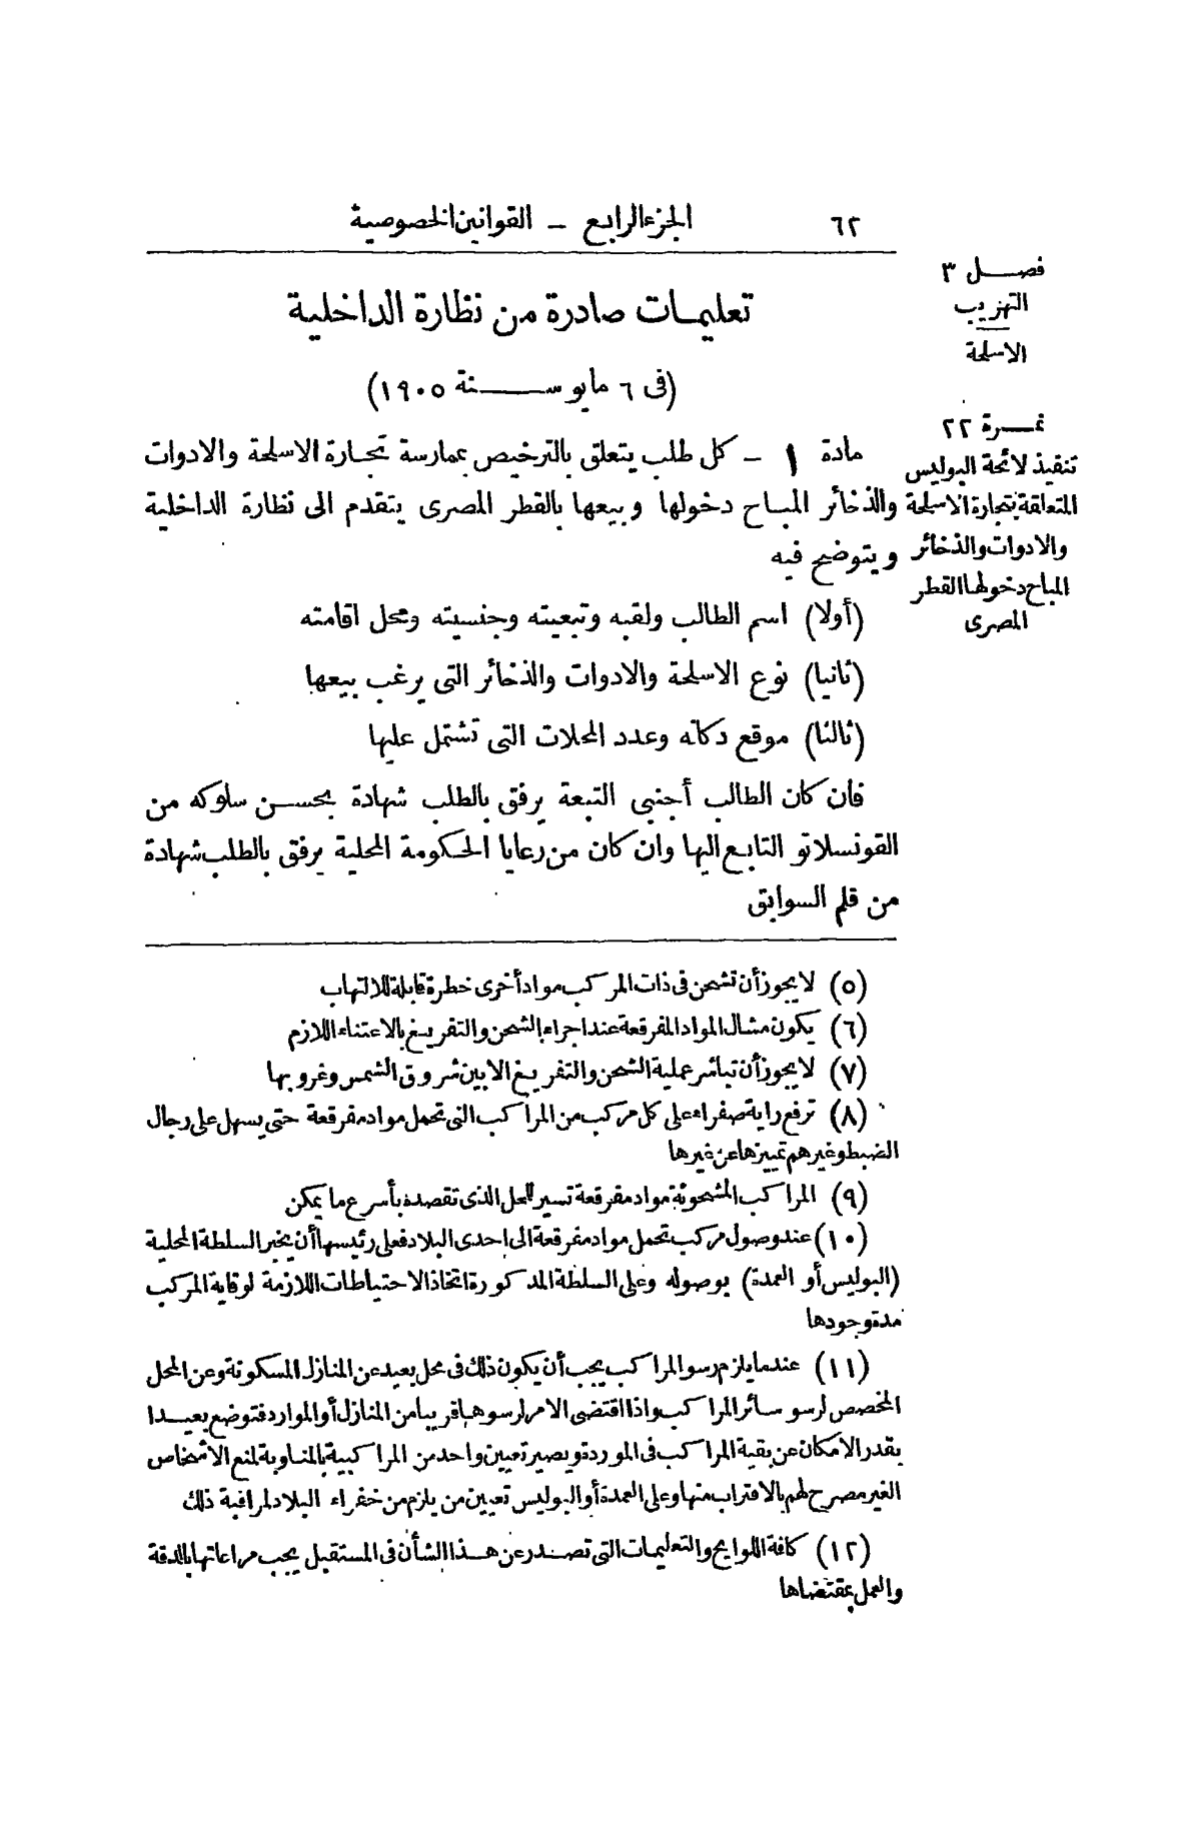 ٦٢
الجزء الرابع — القوانين الخصوصية
فصـــل ٣
التهريب
الاسلحة
نمـــرة ٢٢
تنفيذ لائحة البوليس
المتعلقة بتجارة الاسلحة
والادوات والذخائر
المباح دخولها القطر
المصرى
تعليمـات صادرة من نظارة الداخلية
(فى ٦ مايو ســـنة ١٩٠٥)
مادة ١ — كل طلب يتعلق بالترخيص بممارسة تجـارة الاسلحة والادوات
والذخائر المبـاح دخولها وبيعها بالقطر المصرى يتقدم الى نظارة الداخلية
ويتوضح فيه
(أولا) اسم الطالب ولقبه وتبعيته وجنسيته ومحل اقامته
(ثانيا) نوع الاسلحة والادوات والذخائر التى يرغب بيعها
(ثالثا) موقع دكانه وعدد المحلات التى تشتمل عليها
فان كان الطالب أجنبى التبعة يرفق بالطلب شهادة بحســـن سلوكه من
القونسلاتو التابـع اليها وان كان من رعايا الحكومة المحلية يرفق بالطلب شهادة
من قلم السوابق
(٥) لا يجوز أن تشحن فى ذات المراكب مواد أخرى خطرة قابلة للالتهاب
(٦) يكون مشال المواد المفرقعة عند اجراء الشحن والتفريـغ بالاعتناء اللازم
(٧) لا يجوز أن تباشر عملية الشحن والتفريـغ الا بين شروق الشمس وغروبها
(٨) ترفع راية صفراء على كل مركب من المراكب التى تحمل مواد مفرقعة حتى يسهل على رجال
الضبط وغيرهم تمييزها عن غيرها
(٩) المراكب المشحونة مواد مفرقعة تسير للمحل الذى تقصده بأسرع ما يمكن
(١٠) عند وصول مركب تحمل مواد مفرقعة الى احدى البلاد فعلى رئيسها أن يخبر السلطة المحلية
(البوليس أو العمدة) بوصوله وعلى السلطة المذكورة اتخاذ الاحتياطات اللازمة لوقاية المركب
مدة وجودها
(١١) عندما يلزم رسو المراكب يجب أن يكون ذلك فى محل بعيد عن المنازل المسكونة وعن المحل
المخصص لرسو سائر المراكب واذا اقتضى الامر لرسوها قريبا من المنازل أو الموارد فتوضع بعيـدا
بقدر الامكان عن بقية المراكب فى الموردة ويصير تعيين واحد من المراكبية بالمناوبة لمنع الاشخاص
الغير مصرح لهم بالاقتراب منها وعلى العمدة أو البوليس تعيين من يلزم من خفراء البلاد لمراقبة ذلك
(١٢) كافة اللوايح والتعليمات التى تصـدر عن هـذا الشأن فى المستقبل يجب مراعاتها بالدقة
والعمل بمقتضاها